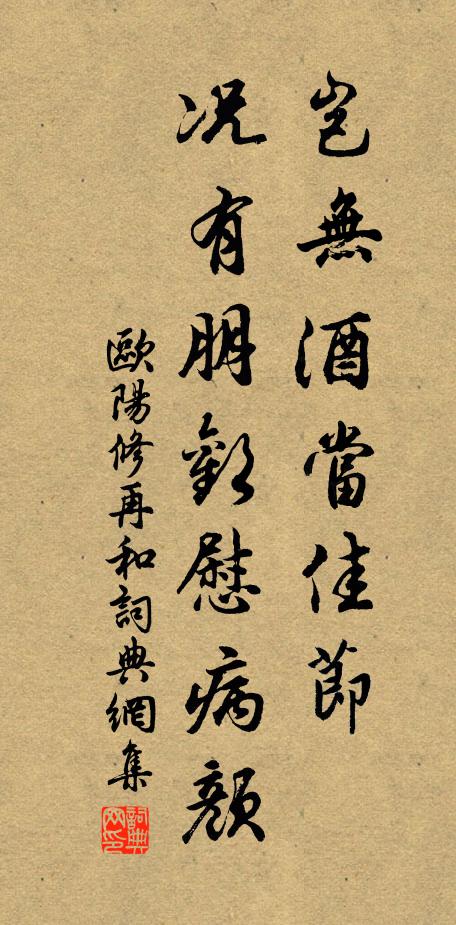 豈無酒當佳節
况有朋歡慰病顏
歐陽修再和詞典網集
詞典網印